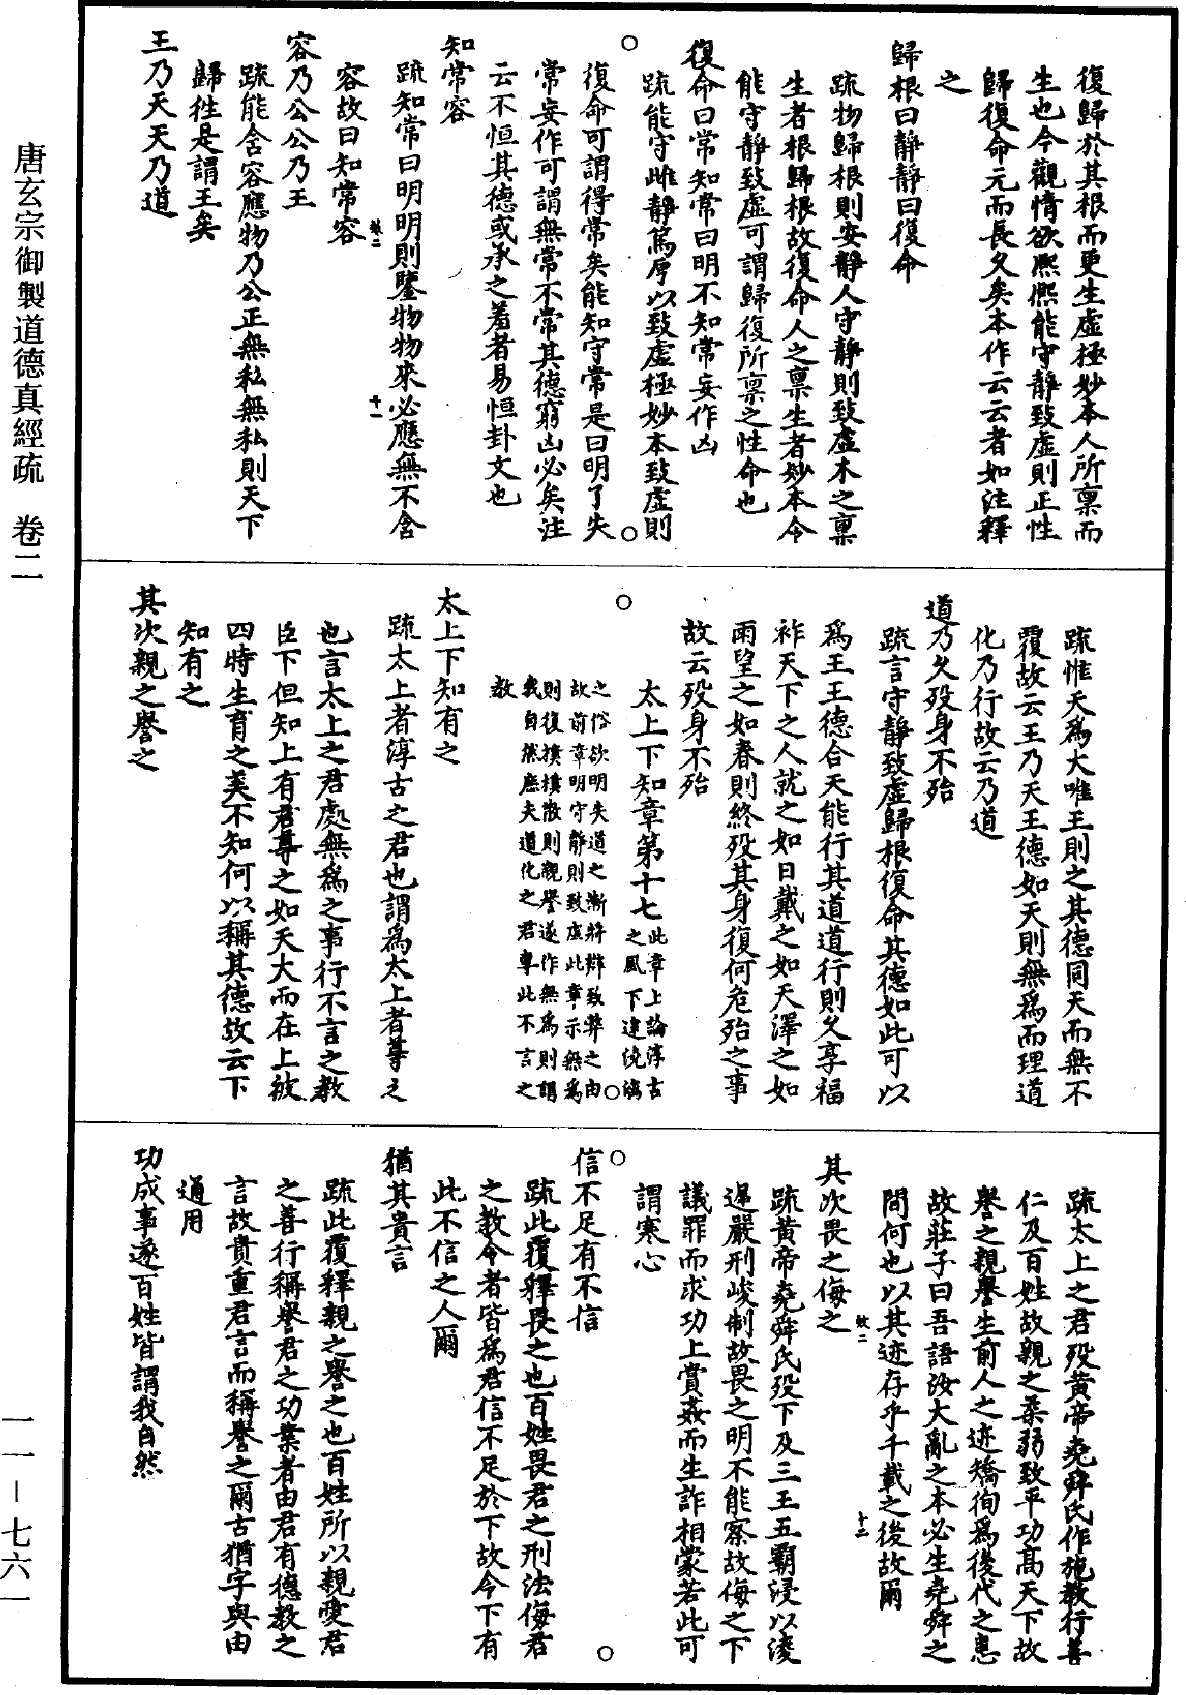 復歸於其根而更生虛極妙本人所禀而
生也今觀情欲熙熙能守靜致虛則正性
歸復命元而長久矣本作云云者如注釋
之
歸根曰靜靜曰復命
疏物歸根則安靜人守靜則致虛木之禀
生者根歸根故復命人之禀生者妙本今
能守靜致虛可謂歸復所禀之性命也
復命曰常知常曰明不知常妄作凶
疏能守雌靜篤厚以致虛極妙本致虛則
復命可謂得常矣能知守常是曰明了失
常妄作可謂無常不常其德窮凶必矣注
云不恒其德或承之羞者易恒卦文也
知常容
疏知常曰明明則鑒物物來必應無不含
容故曰知常容
容乃公公乃王
疏能含容應物乃公正無私無私則天下
歸往是謂王矣
王乃天天乃道
疏惟天爲大唯王則之其德同天而無不
覆故云王乃天王德如天則無爲而理道
化乃行故云乃道
道乃久歿身不殆
疏言守靜致虛歸根復命其德如此可以
爲王王德合天能行其道道行則久享福
祚天下之人就之如日戴之如天澤之如
雨望之如春則終歿其身復何危殆之事
故云歿身不殆
太上下知章第十七此章上論淳古
之風下逮澆漓
之俗欲明失道之漸將辯致弊之由
故前章明守靜則致虛此章示無爲
則復樸樸散則親譽遂作無爲則謂
我自然塵夫道化之君專此不言之
教
太上下知有之
疏太上者淳古之君也謂爲太上者尊之
也言太上之君處無爲之事行不言之教
臣下但知上有君尊之如天大而在上被
四時生育之美不知何以稱其德故云下
知有之
其次親之譽之
疏太上之君歿黄帝堯舜氏作施教行善
仁及百姓故親之柔弱致平功高天下故
譽之親譽生前人之迹矯徇爲後代之患
故莊子曰吾語汝大亂之本必生堯舜之
間何也以其迹存乎千載之後故爾
其次畏之侮之
疏黄帝堯舜氏歿下及三王五霸浸以淩
遲嚴刑峻制故畏之明不能察故侮之下
議罪而求功上賞姦而生詐相蒙若此可
謂寒心
信不足有不信
疏此覆釋畏之也百姓畏君之刑法侮君
之教令者皆爲君信不足於下故令下有
此不信之人爾
猶其貴言
疏此覆釋親之譽之也百姓所以親愛君
之善行稱譽君之功業者由君有德教之
言故貴重君言而稱譽之爾古猶字與由
通用
功成事遂百姓皆謂我自然
唐玄宗御製道德真經疏　卷二
一一－七六一